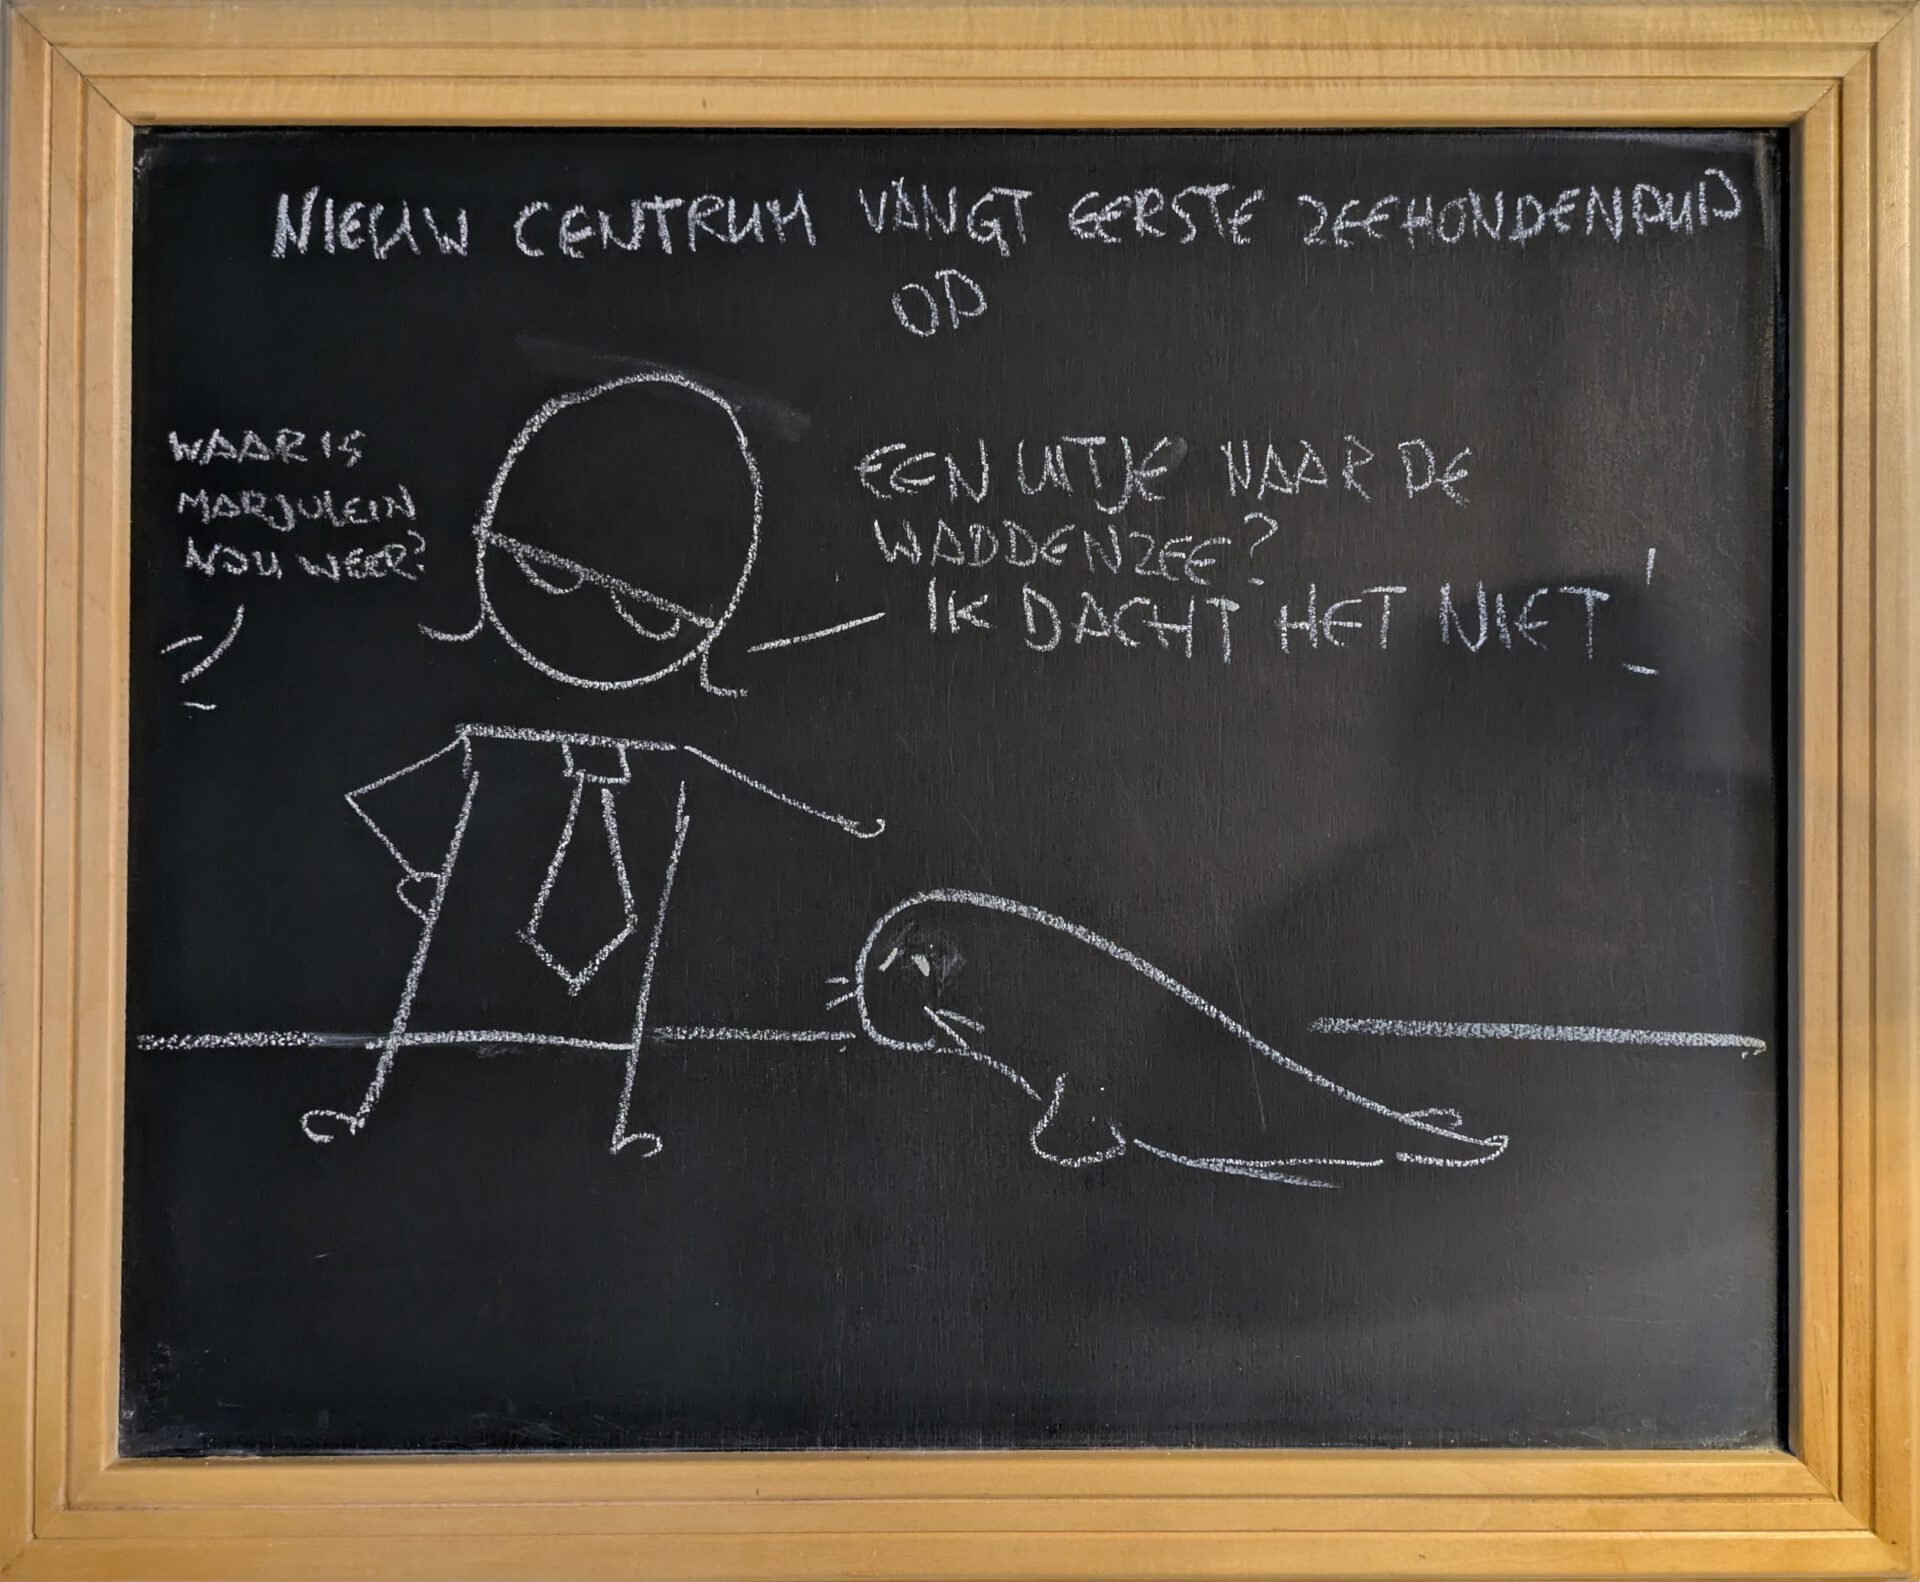 NIEUW CENTRUM VANGT EERSTE ZEEHONDENPUP
OP
WAAR IS
MARJULEIN
NOU WEER?
EEN UITJE NAAR DE
WADDENZEE?
IK DACHT HET NIET!